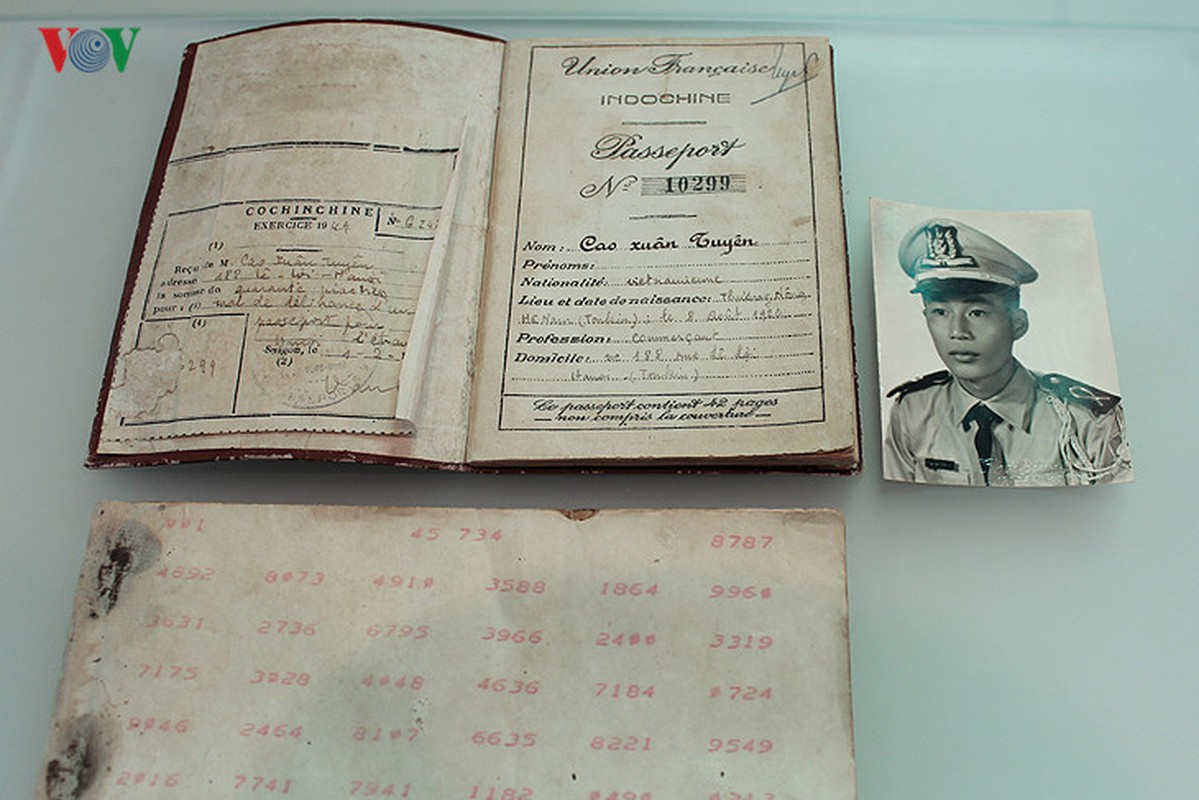 VOV
COCHINCHINE
EXERCICE 19
Nº
(1)
Reçu de M. Cao Xuân Tuyên
adresse 188 Lê-Lợi-Hanoi
la somme de quarante piastres
pour: (3)
passeport pour
(4)
Saigon, le
(2)
299
Union Française
INDOCHINE
Passeport
Nº 10299
Nom: Cao Xuân Tuyên
Prénoms:
Nationalité: vietnamienne
Lieu et date de naissance:
Hà Nam (Tonkin): le 8 Août 1920
Profession: commerçant
Domicile: nº 188 rue Lê Lợi
Hanoi (Tonkin)
Ce passeport contient 42 pages
non compris la couverture
001 45 734 8787
4892 8073 4910 3588 1864 9960
3631 2736 6795 3966 2400 3319
7175 3028 4048 4636 7184 0724
9046 2464 8107 6635 8221 9549
2016 7741 7941 1182